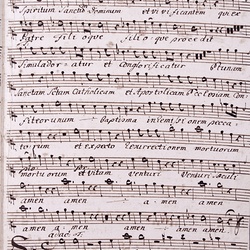 Spiritum Sanctum Dominum et vivificantem qui ex
Patre filioque filioque procedit
Simul ador atur et Conglorificatur
Sanctam Catholicam et Apostolicam Ecclesiam Con
Baptisma in remissionem pecca
torum et expecto Resurrectionem mortuorum
mortuorum et vitam venturi Venturi
amen amen amen
amen amen amen amen